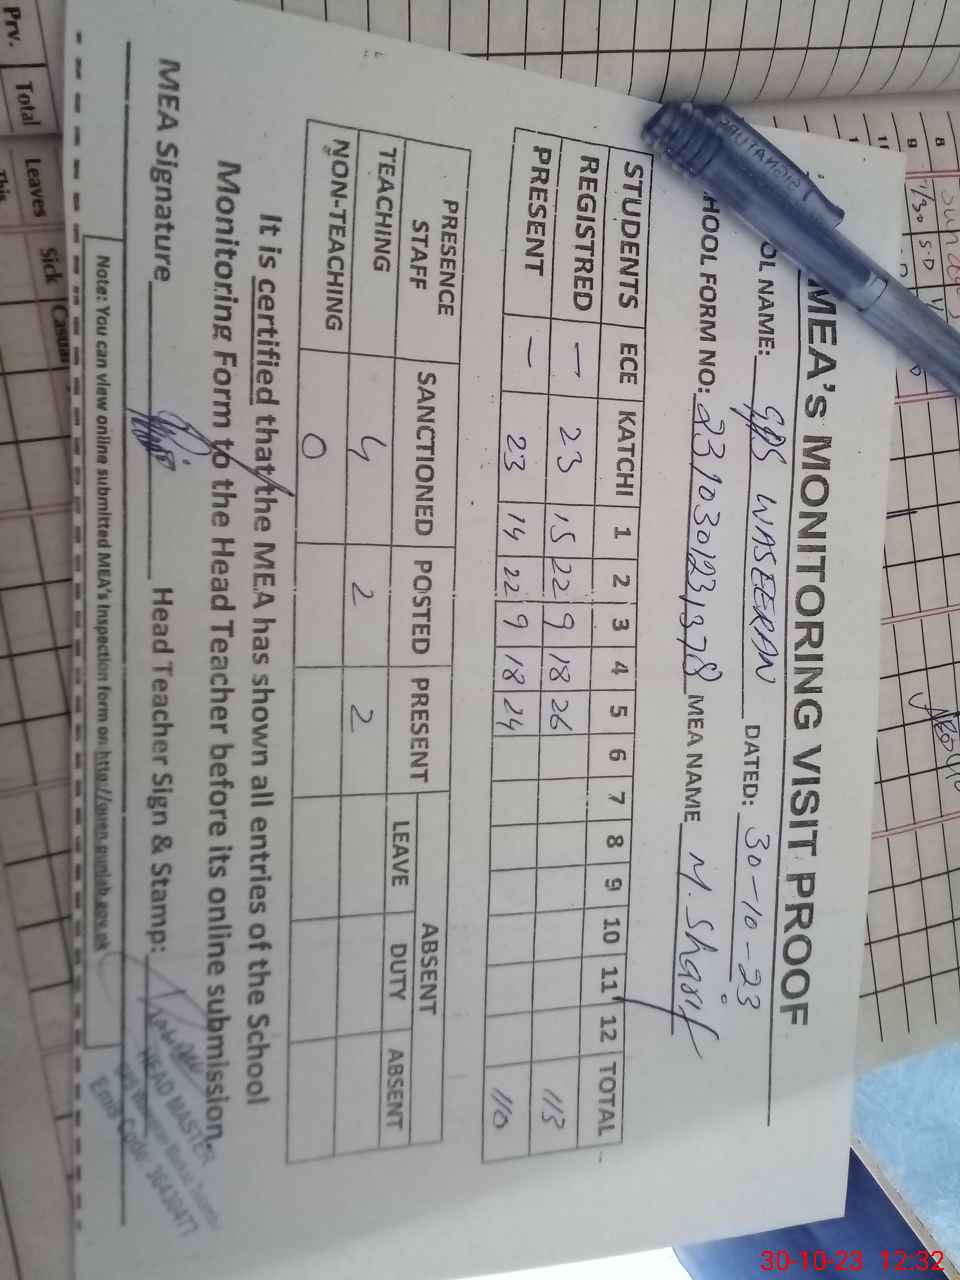 MEA's MONITORING VISIT PROOF
OL NAME: GPS WASEERAN DATED: 30-10-23
HOOL FORM NO: MEA NAME M. Sharif
STUDENTS ECE KATCHI 1 2 3 4 5 6 7 8 9 10 11 12 TOTAL
REGISTRED — 23 15 22 9 18 26 113
PRESENT — 23 14 22 9 18 24 110
PRESENCE STAFF SANCTIONED POSTED PRESENT ABSENT
LEAVE DUTY ABSENT
TEACHING 4 2 2
NON-TEACHING 0
It is certified that the MEA has shown all entries of the School
Monitoring Form to the Head Teacher before its online submission.
MEA Signature Head Teacher Sign & Stamp:
HEAD MASTER
Emis Code: 36430477
Note: You can view online submitted MEA's Inspection form on http://open.punjab.gov.pk
Prv. Total
Leaves Sick Casual
This
8
9
7/30 S.D
30-10-23 12:32